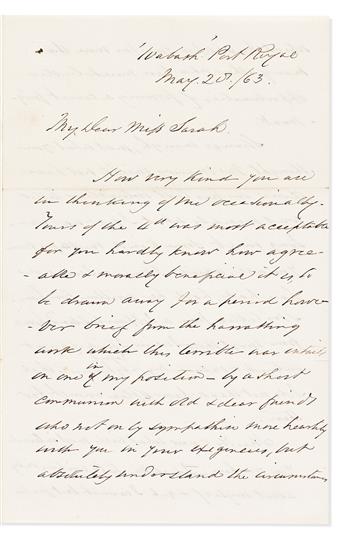 'Wabash' Port Royal
May. 20. /63.
My Dear Miss Sarah.
How very kind you are
in thinking of me occasionally-
Yours of the 4th was most acceptable
for you hardly know how agree-
-able & morally beneficial it is, to
be drawn away for a period howe-
-ver brief from the harrassing
work which this terrible war entails
on one in my position - by a short
communion with old & dear friends
who not only sympathise more heartily
with you in your exigencies, but
absolutely understand the circumstances